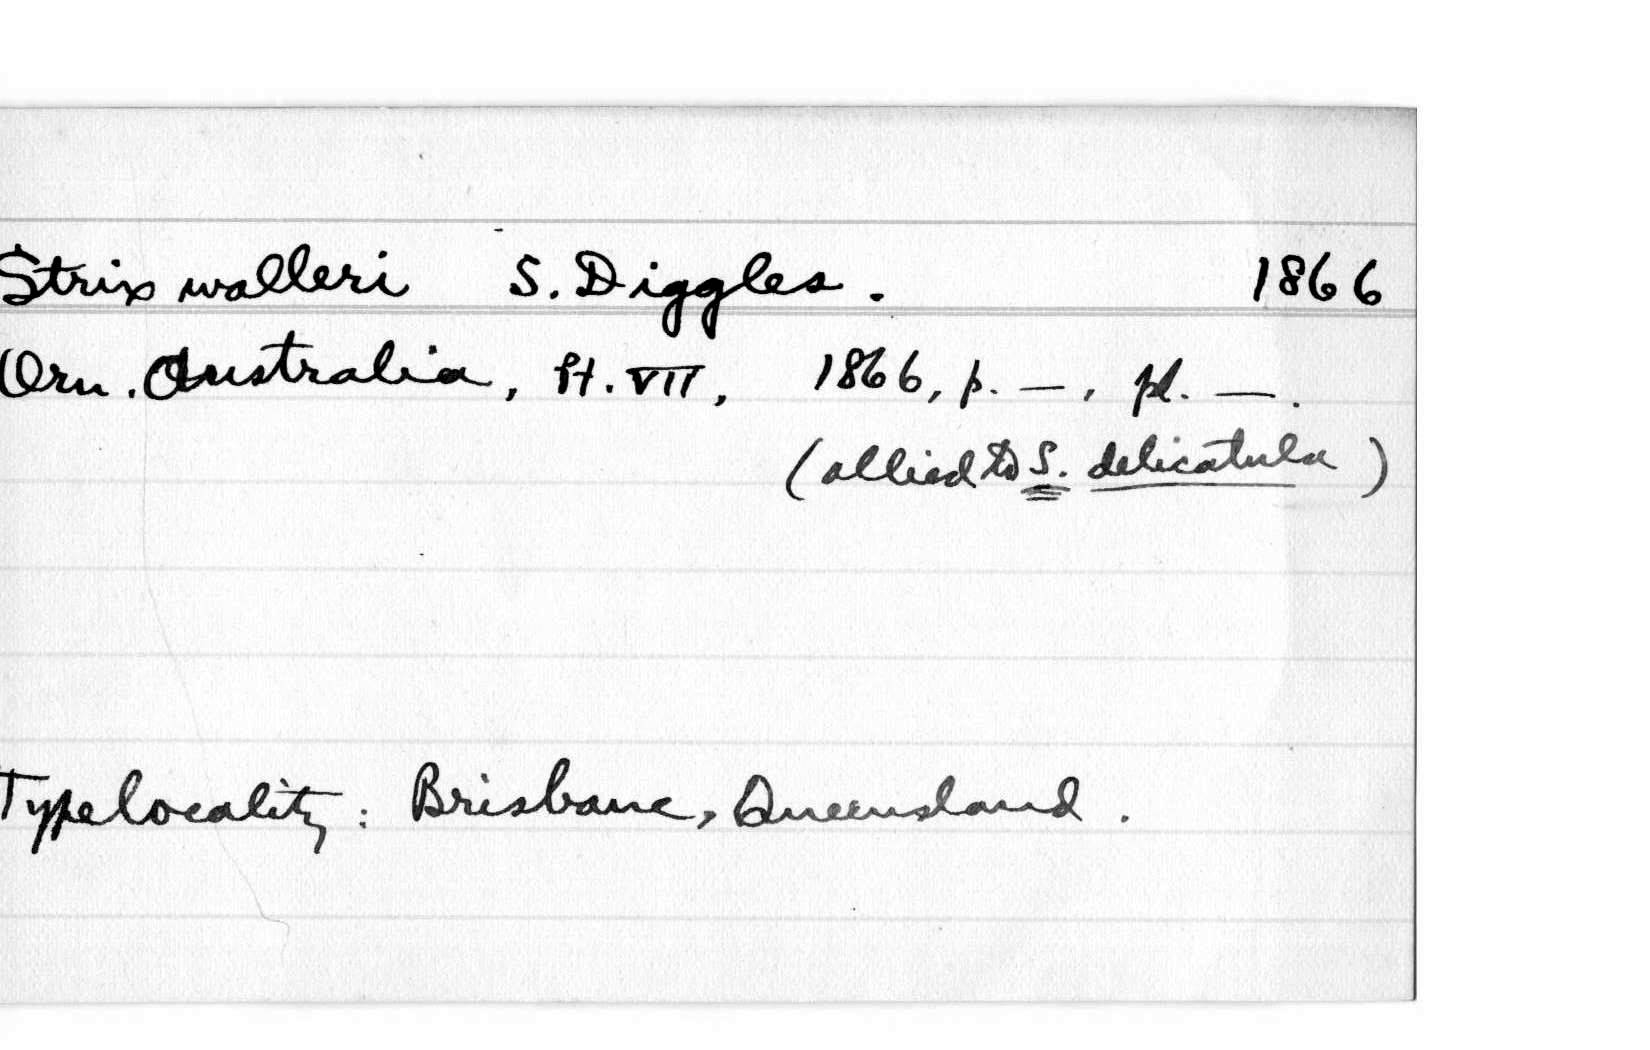 Strix walleri S. Diggles. 1866
Orn. Australia, Pt. VII, 1866, p. —, pl. —.
(allied to S. delicatula)
Type locality: Brisbane, Queensland.